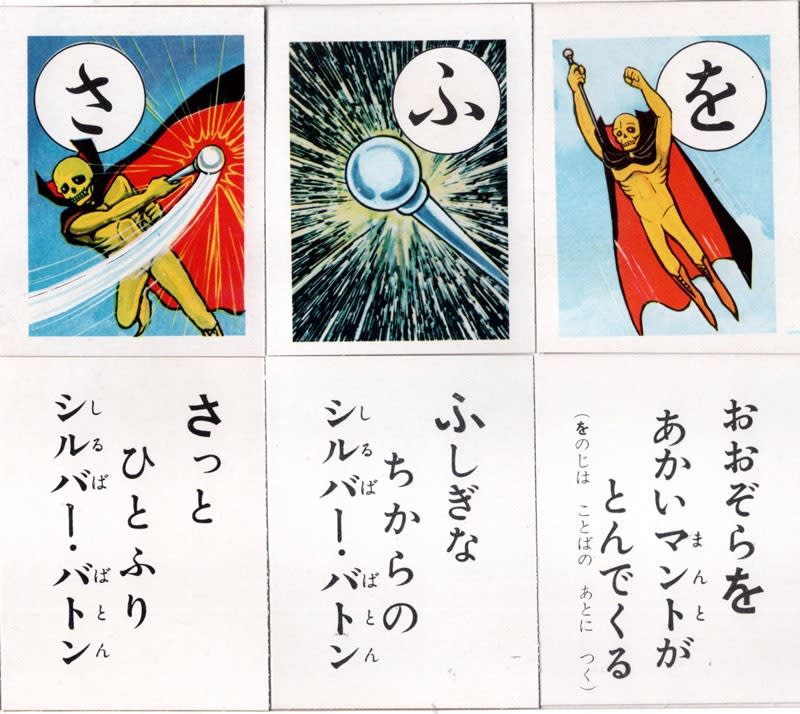 さ
ふ
を
さっと
ひとふり
シルバー・バトン
しるば ばとん
ふしぎな
ちからの
シルバー・バトン
しるば ばとん
おおぞらを
あかいマントが
まんと
とんでくる
(をのじは ことばの あとに つく)